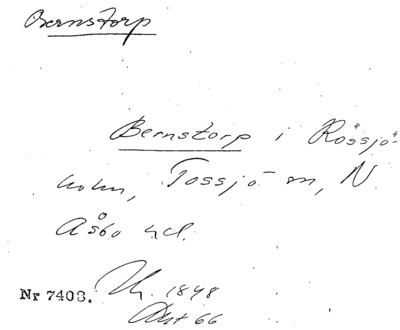 Bernstorp
Bernstorp i Rössjö-
holm, Tossjö sn, N
Åsbo hd.
Nr 7403. 1848
66